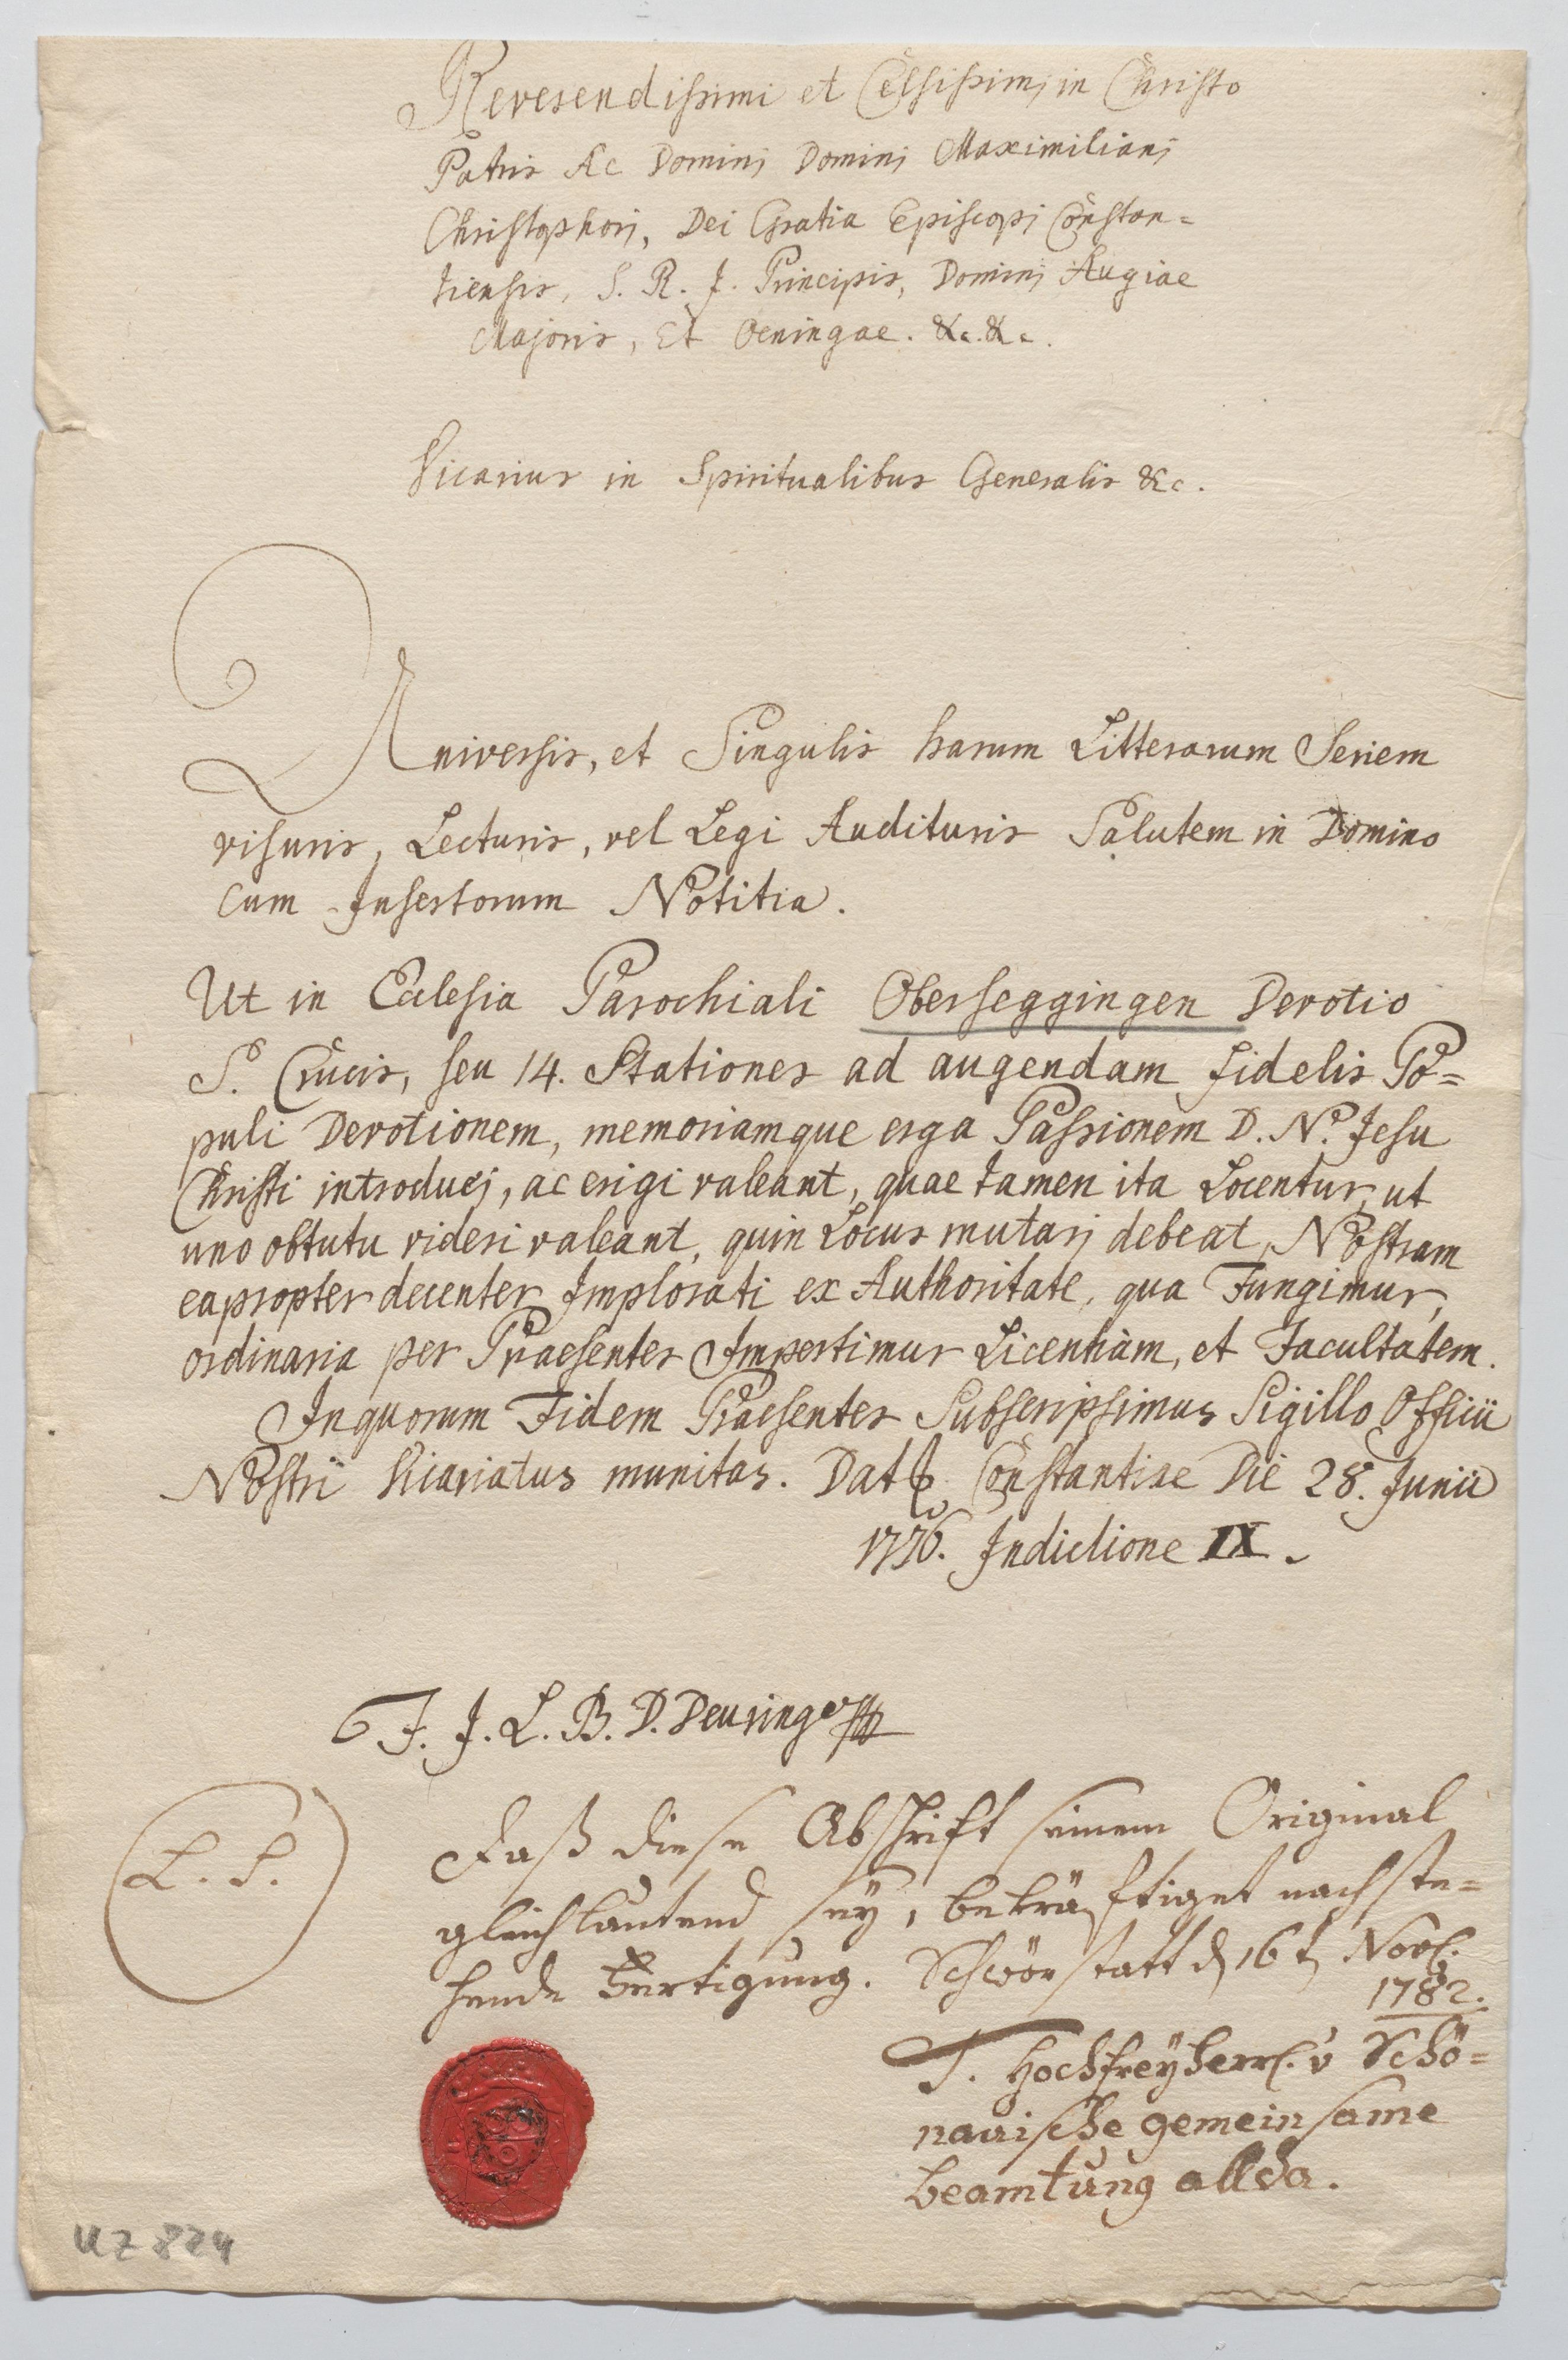 Reverendissimi et Celsissimi in Christo
Patris Ac Domini Domini Maximiliani
Christophori, Dei Gratia Episcopi Constan=
tiensis, S. R. J. Principis, Domini Augiae
Majoris, Et Oeningae. &c. &c.
Vicarius in Spiritualibus Generalis &c.
Universis, et Singulis harum Litterarum Seriem
visuris, Lecturis, vel Legi Audituris Salutem in Domino
cum Insertorum Notitia.
Ut in Ecclesia Parochiali Oberseggingen Devotio
S. Crucis, seu 14. Stationes ad augendam fidelis Po=
puli Devotionem, memoriamque erga Passionem D. N. Jesu
Christi introduci, ac erigi valeant, quae tamen ita Locentur, ut
uno obtutu videri valeant, quin Locus mutari debeat, Nostram
eapropter decenter Implorati ex Authoritate, qua Fungimur,
ordinaria per Praesentes Impertimur Licentiam, et Facultatem.
In quorum Fidem Praesentes Subscripsimus Sigillo Officii
Nostri Vicariatus munitas. Dat Constantiae Die 28. Junii
1776. Indictione IX.
F. J. L. B. D. Deuring
L. S.
daß diese Abschrift seinem Original
gleichlautend seÿ, bekräftiget nachste=
hende Fertigung. Schwörstatt d 16t Novl.
1782.
T. Hochfreÿherrl. v Schö=
nauische gemeinsame
beamtung allda.
UZ 824